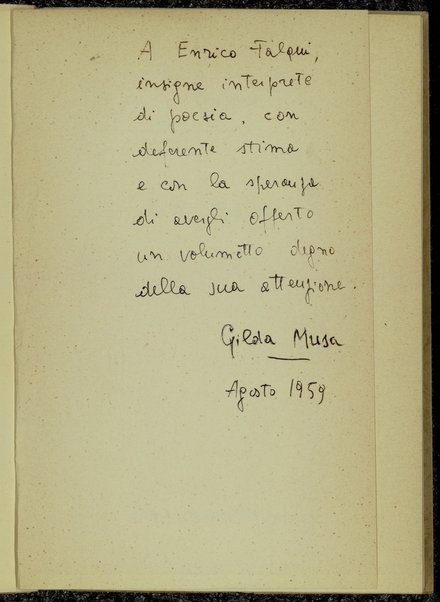 A Enrico Falqui,
insigne interprete
di poesia, con
deferente stima
e con la speranza
di avergli offerto
un volumetto degno
della sua attenzione.
Gilda Musa
Agosto 1959